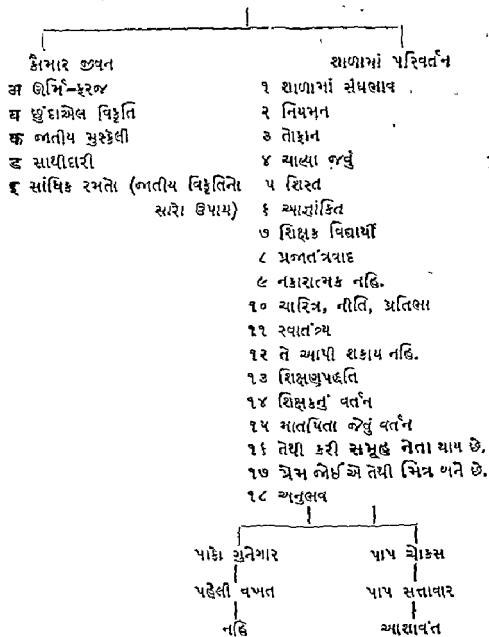 કૌમાર જીવન
अ ઊર્મિ-ફરજ
ब છુંદાએલ વિકૃતિ
क જાતીય મુશ્કેલી
ड સાથીદારી
इ સાંઘિક રમતો (જાતીય વિકૃતિનો
સારો ઉપાય)
શાળામાં પરિવર્તન
૧ શાળામાં સંઘભાવ
૨ નિયમન
૩ તોફાન
૪ ચાલ્યા જવું
૫ શિસ્ત
૬ આજ્ઞાંકિત
૭ શિક્ષક વિદ્યાર્થી
૮ પ્રજાતંત્રવાદ
૯ નકારાત્મક નહિ.
૧૦ ચારિત્ર, નીતિ, પ્રતિભા
૧૧ સ્વાતંત્ર્ય
૧૨ તે આપી શકાય નહિ.
૧૩ શિક્ષણપદ્ધતિ
૧૪ શિક્ષકનું વર્તન
૧૫ માતપિતા જેવું વર્તન
૧૬ તેથી કરી સમૂહ નેતા થાય છે.
૧૭ પ્રેમ જોઈએ તેથી મિત્ર બને છે.
૧૮ અનુભવ
પાકો ગુનેગાર
પહેલી વખત
નહિ
પાપ ચોકસ
પાપ સત્તાવાર
આશાવંત